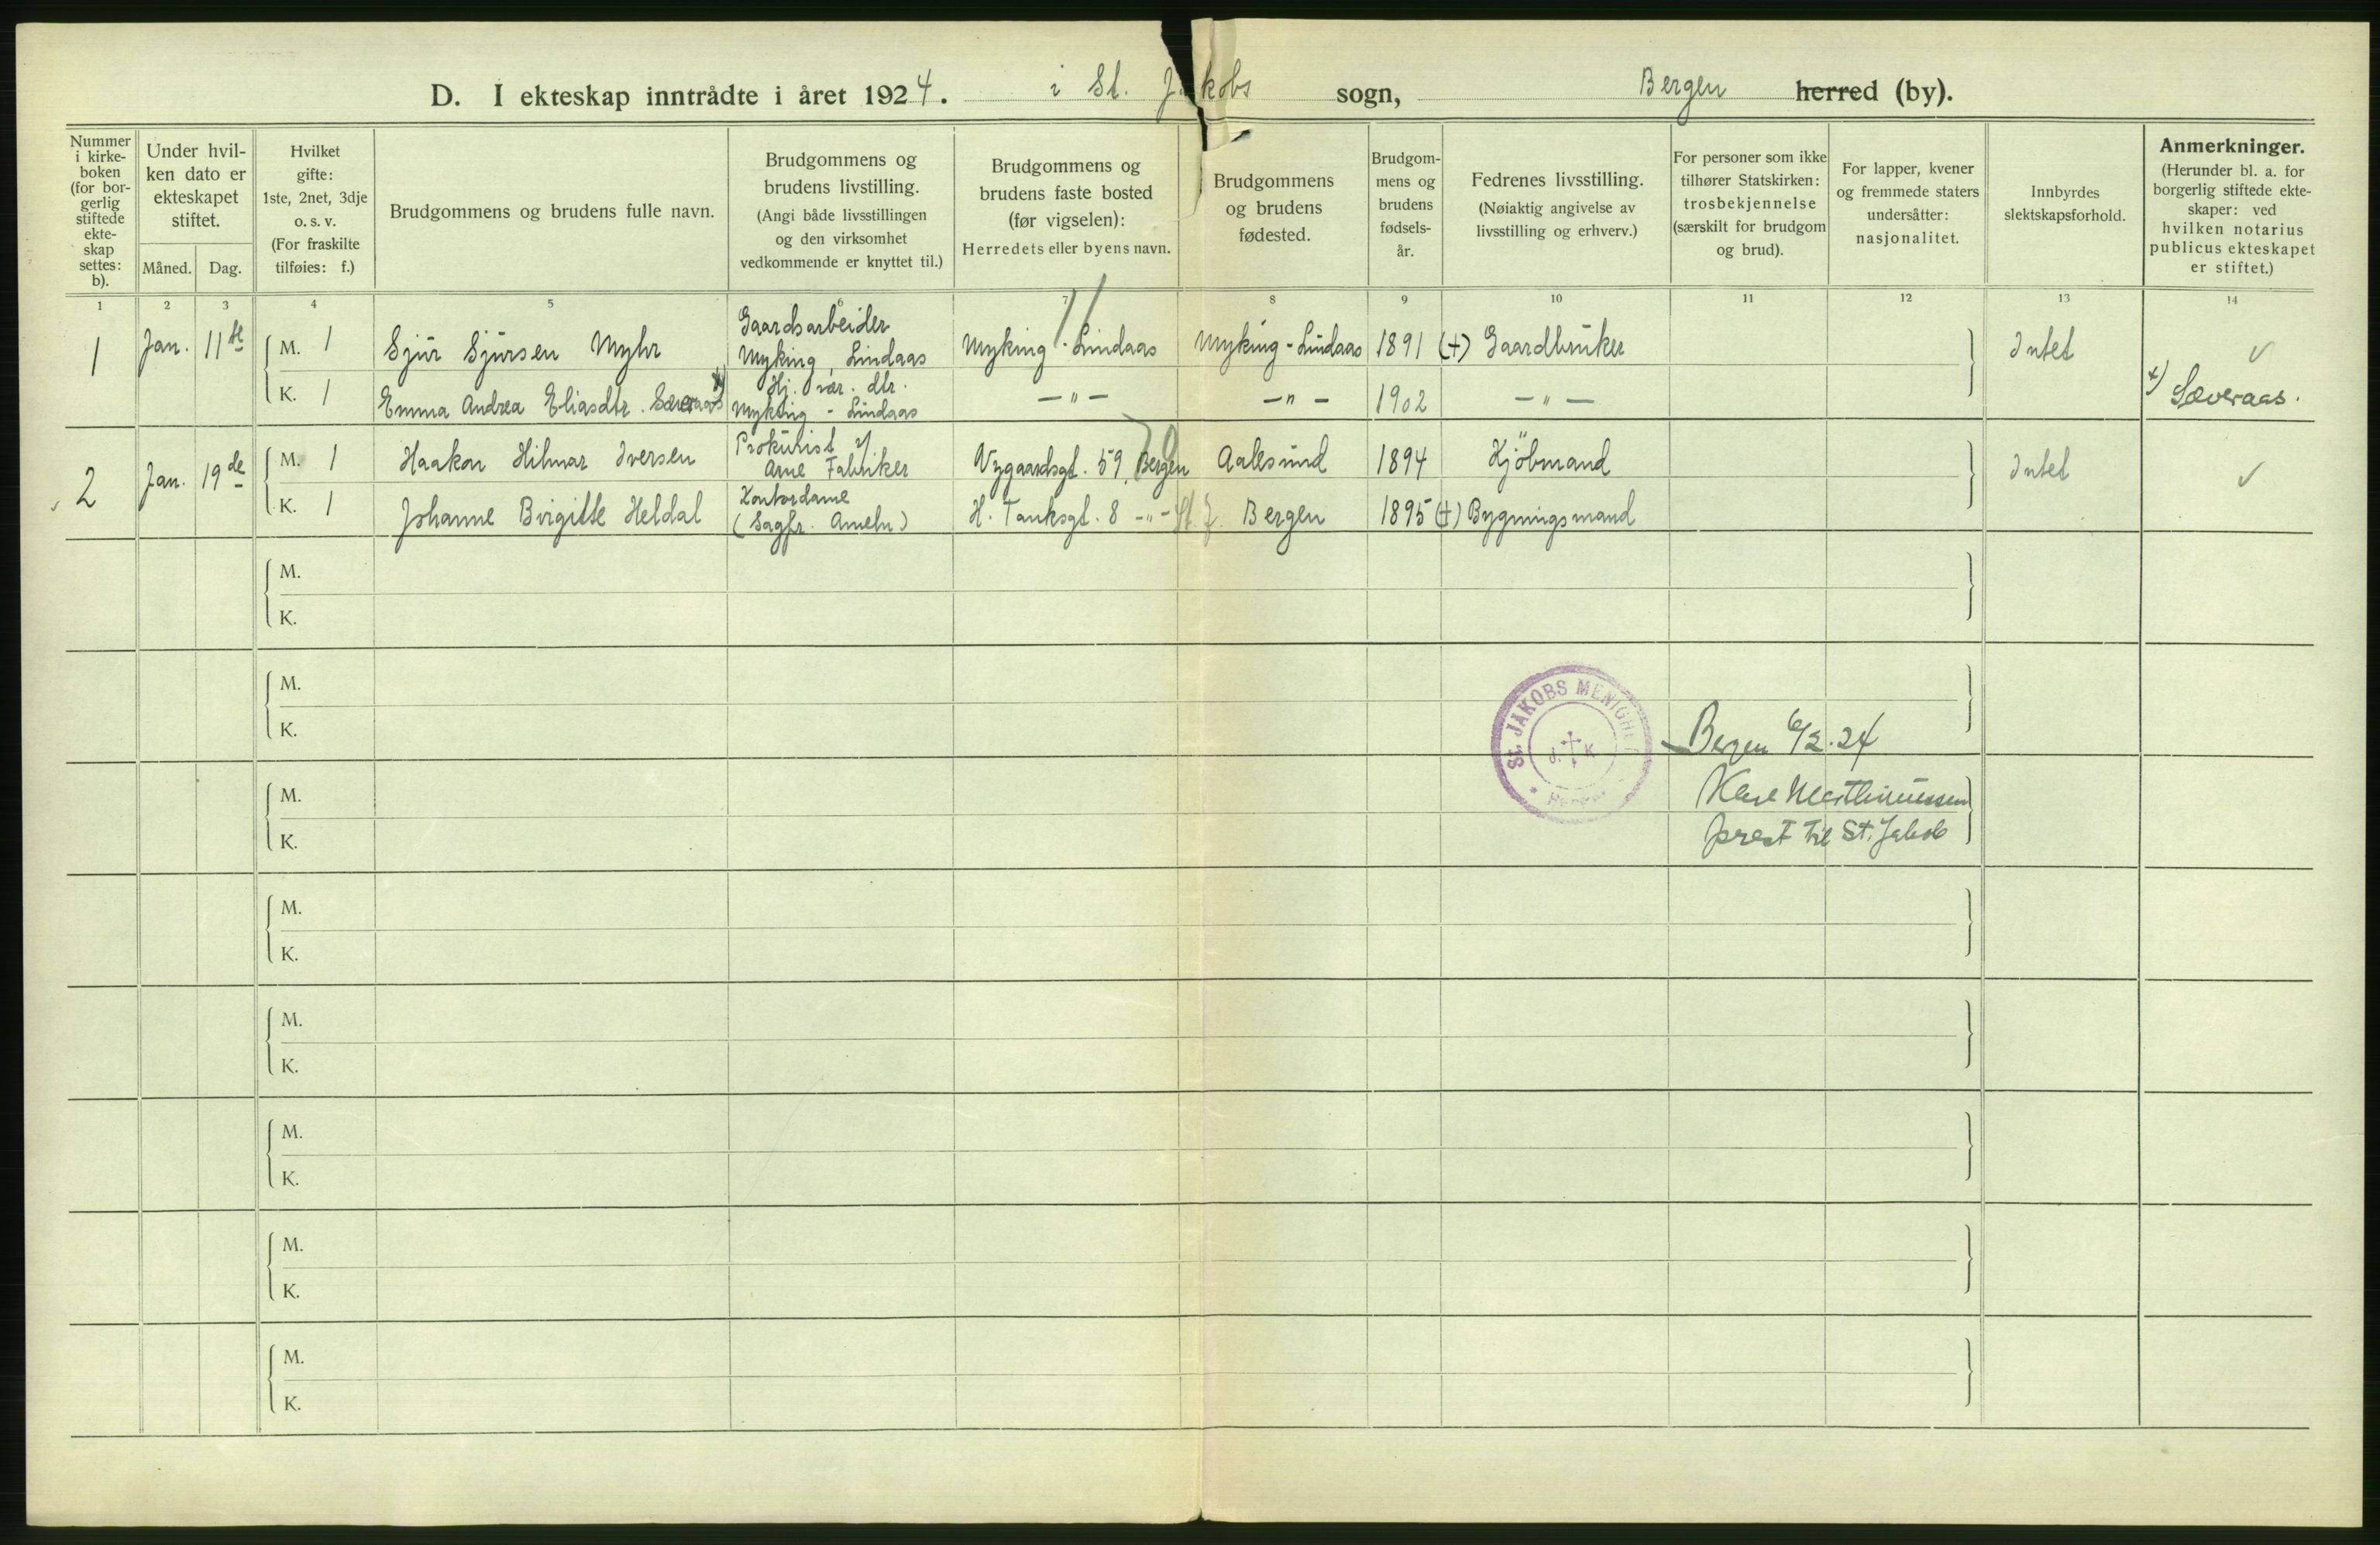 D. I ekteskap inntrådte i året 1924. i St. Jakobs sogn, Bergen herred (by).
Nummer i kirkeboken (for borgerlig stiftede ekteskap settes: b).
Under hvilken dato er ekteskapet stiftet.
Måned. Dag.
Hvilket gifte: 1ste, 2net, 3dje o. s. v. (For fraskilte tilføies: f.)
Brudgommens og brudens fulle navn.
Brudgommens og brudens livstilling. (Angi både livsstillingen og den virksomhet vedkommende er knyttet til.)
Brudgommens og brudens faste bosted (før vigselen): Herredets eller byens navn.
Brudgommens og brudens fødested.
Brudgommens og brudens fødselsår.
Fedrenes livsstilling. (Nøiaktig angivelse av livsstilling og erhverv.)
For personer som ikke tilhører Statskirken: trosbekjennelse (særskilt for brudgom og brud).
For lapper, kvener og fremmede staters undersåtter: nasjonalitet.
Innbyrdes slektskapsforhold.
Anmerkninger. (Herunder bl. a. for borgerlig stiftede ekteskaper: ved hvilken notarius publicus ekteskapet er stiftet.)
1 2 3 4 5 6 7 8 9 10 11 12 13 14
1 Jan. 11te M. 1 Sjur Sjursen Myhr Gaardsarbeider Myking, Lindaas Myking - Lindaas Myking - Lindaas 1891 (+) Gaardbruker Intet ✓
K. 1 Emma Andrea Eliasdtr. Sæveraas x) Hj. vær. dtr. Myking - Lindaas — " — — " — 1902 — " — x) Sæveraas.
2 Jan. 19de M. 1 Haakon Hilmar Iversen Prokurist Arne Fabriker Nygaardsgt. 59, Bergen Aalesund 1894 Kjöbmand Intet ✓
K. 1 Johanne Birgitte Heldal Kontordame (Sagfr. Ameln) H. Tanksgt. 8 - " - St. J. Bergen 1895 (+) Bygningsmand
M.
K.
M.
K.
St. JAKOBS MENIGHET
J. K
Bergen 6/2.24
M.
K.
prest til St. Jakob
M.
K.
M.
K.
M.
K.
M.
K.
M.
K.